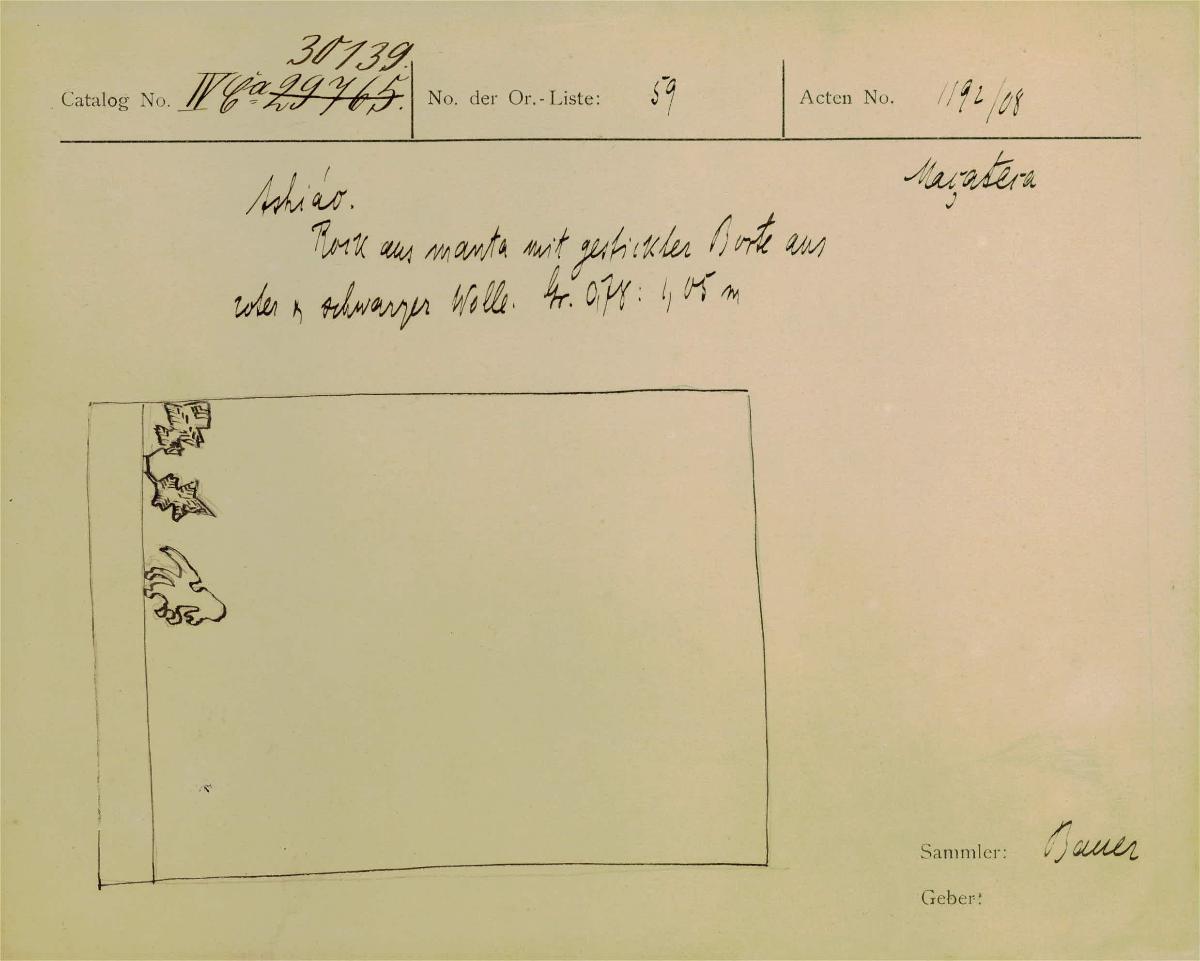 30139.
Catalog No. IV Ca 29765. No. der Or.-Liste: 59 Acten No. 1192/08
Maçateca
Ashiáo.
Rock aus manta mit gestickter Borte aus
roter & schwarzer Wolle. Gr. 0,78 : 1,05 m
Sammler: Bauer
Geber: